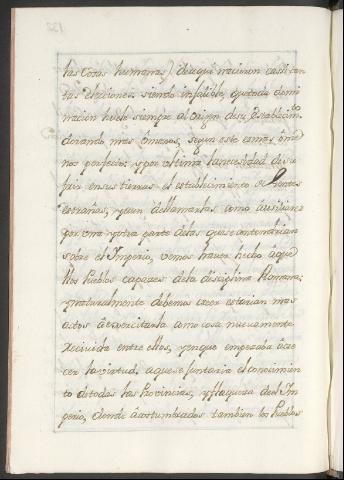 las cosas humanas) de aqui nacieron casi tan
tas elecciones: siendo infalible, q̃ toda domi
nacion huele siempre al origen de su establecim.to
durando mas ò menos, segun este es mas ò me
nos perfecto; y por ultimo la necesidad de su
frir en sus tierras el establecimiento de Gentes
estrañas, y aun de llamarlas como auxiliares
por una y otra parte de las que contendian
sobre el Imperio, vemos haver hecho à aque
llos Pueblos capaces de la disciplina Romana;
y naturalmente debemos creer estarian mas
actos à exercitarla como cosa nuevamente
recivida entre ellos, y en que empezaba à cre
cer la virtud, a que se juntaria el conocimien
to de todas las Provincias, y flaqueza del Im
perio, donde acostumbrados tambien los Pueblos